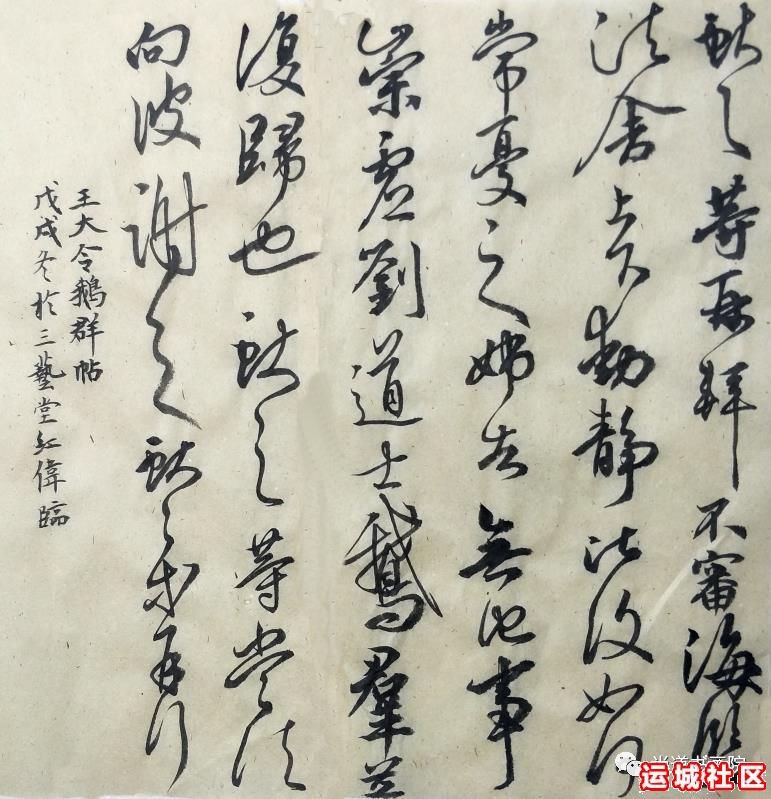 獻之等再拜不審海鹽
諸舍上下動靜比復如何
常憂之姊告無他事
崇虛劉道士鵝羣並
復歸也獻之等當須
向彼謝之獻之等再拜
王大令鵝群帖
戊戌冬於三藝堂紅偉臨
运城社区